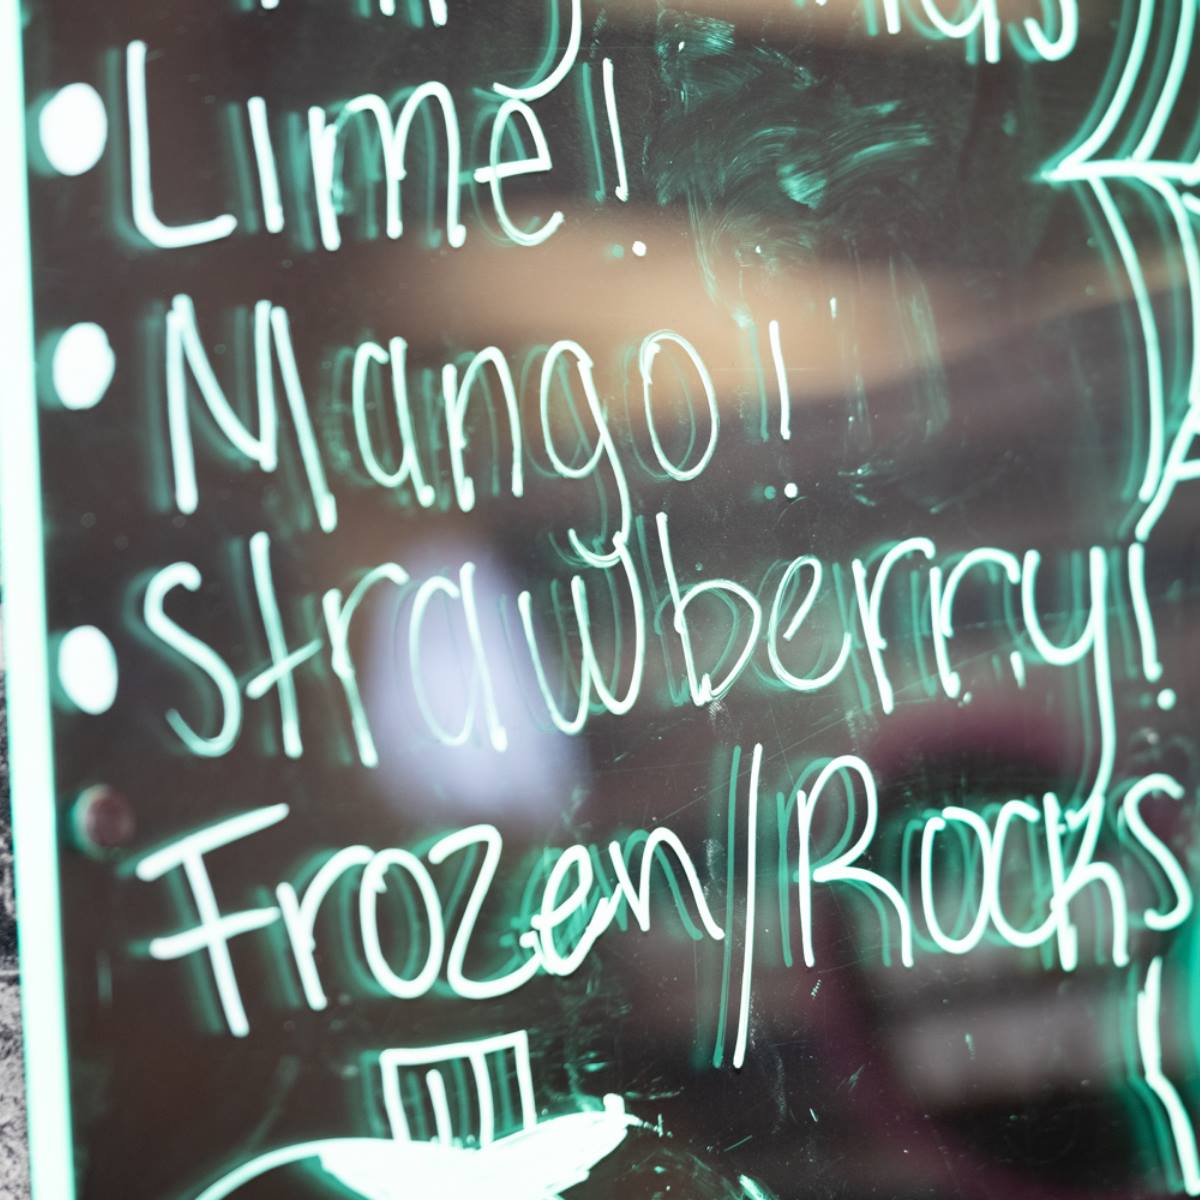 Lime!
Mango!
Strawberry!
Frozen/Rocks